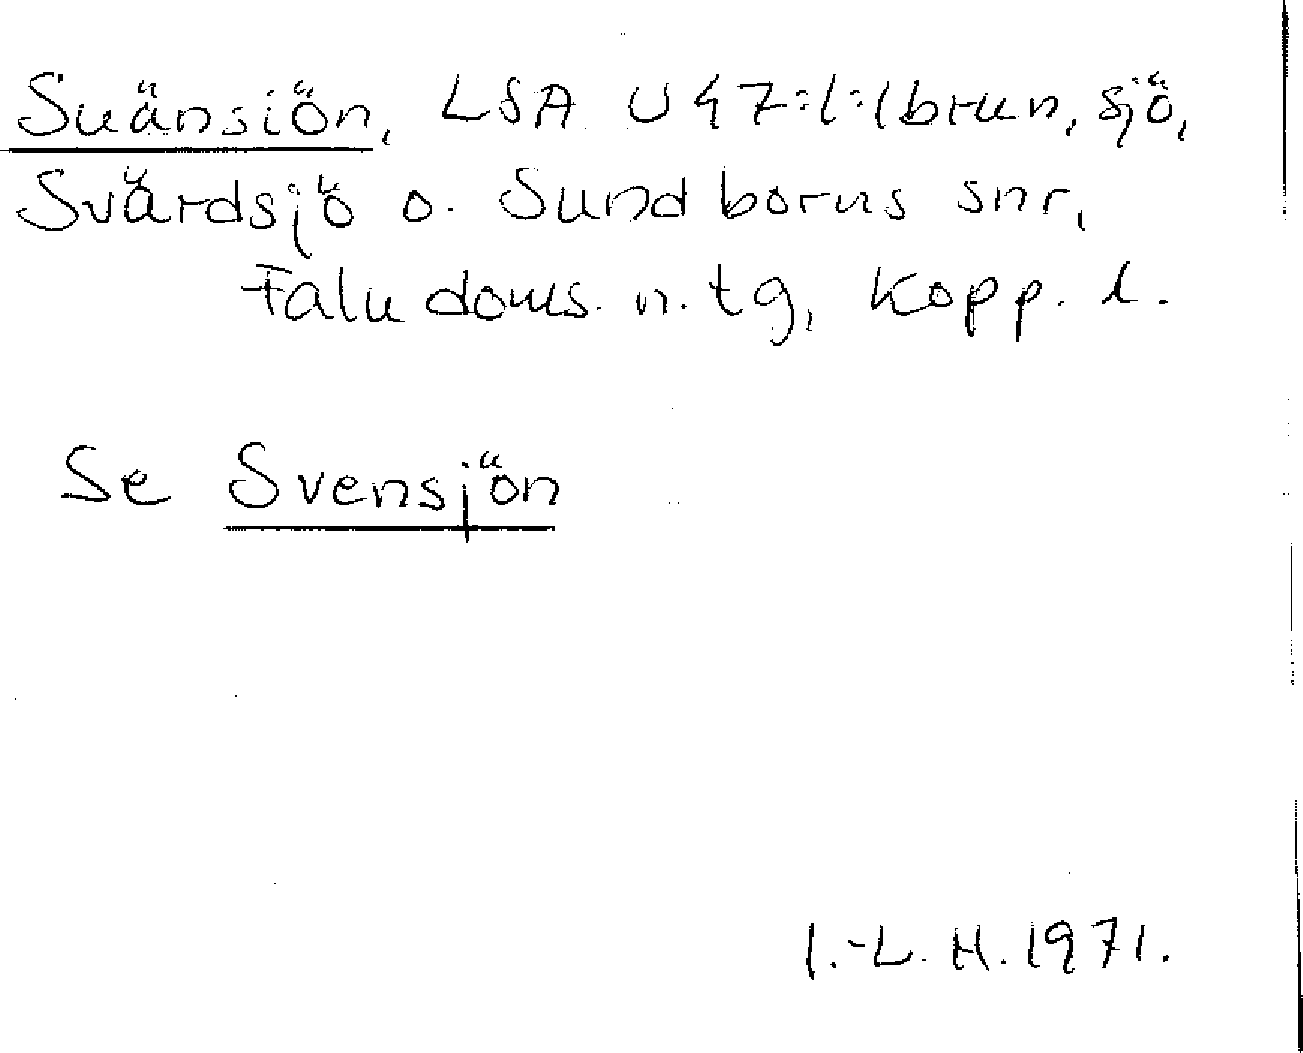 Suänsiön, LSA U47:1:1brun, sjö,
Svärdsjö o. Sundborns snr,
Falu doms. n. tg, Kopp. l.
Se Svensjön
I.-L. H. 1971.